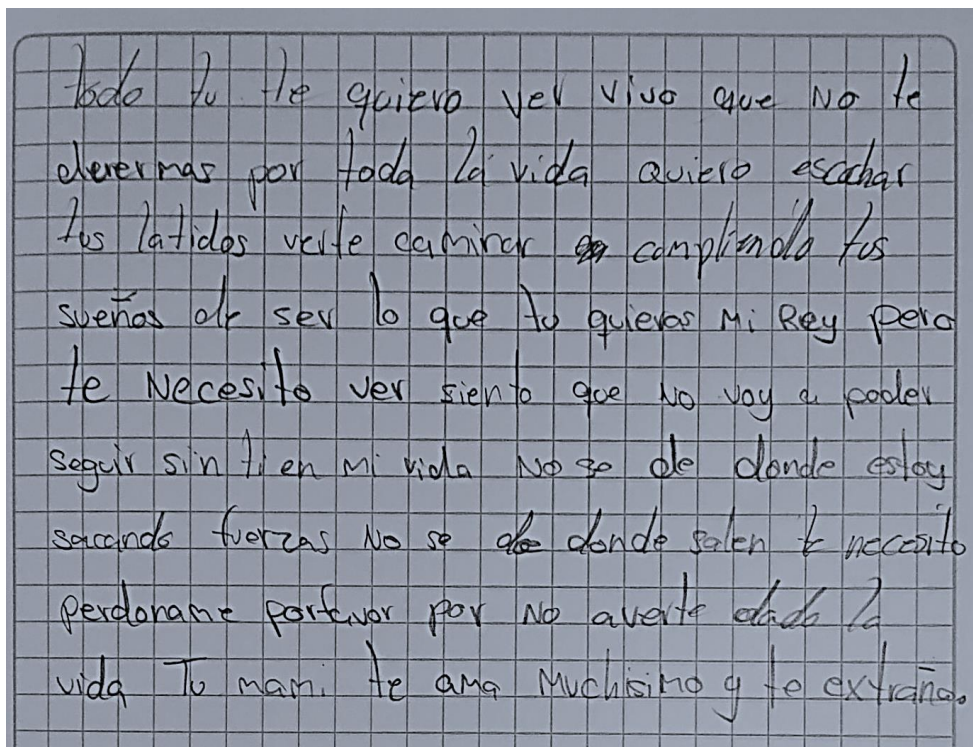 todo tu te quiero ver vivo que No te
derermas por toda la vida Quiero escachar
tus latidos verte caminar compliendo tus
sueños de ser lo que tu quieras Mi Rey pero
te Necesito ver siento que No voy a poder
seguir sin ti en mi vida No se de donde estoy
sacando fuerzas No se de donde salen te necesito
perdoname porfavor por No averte dado la
vida Tu mami te ama Muchisimo y te extraña.